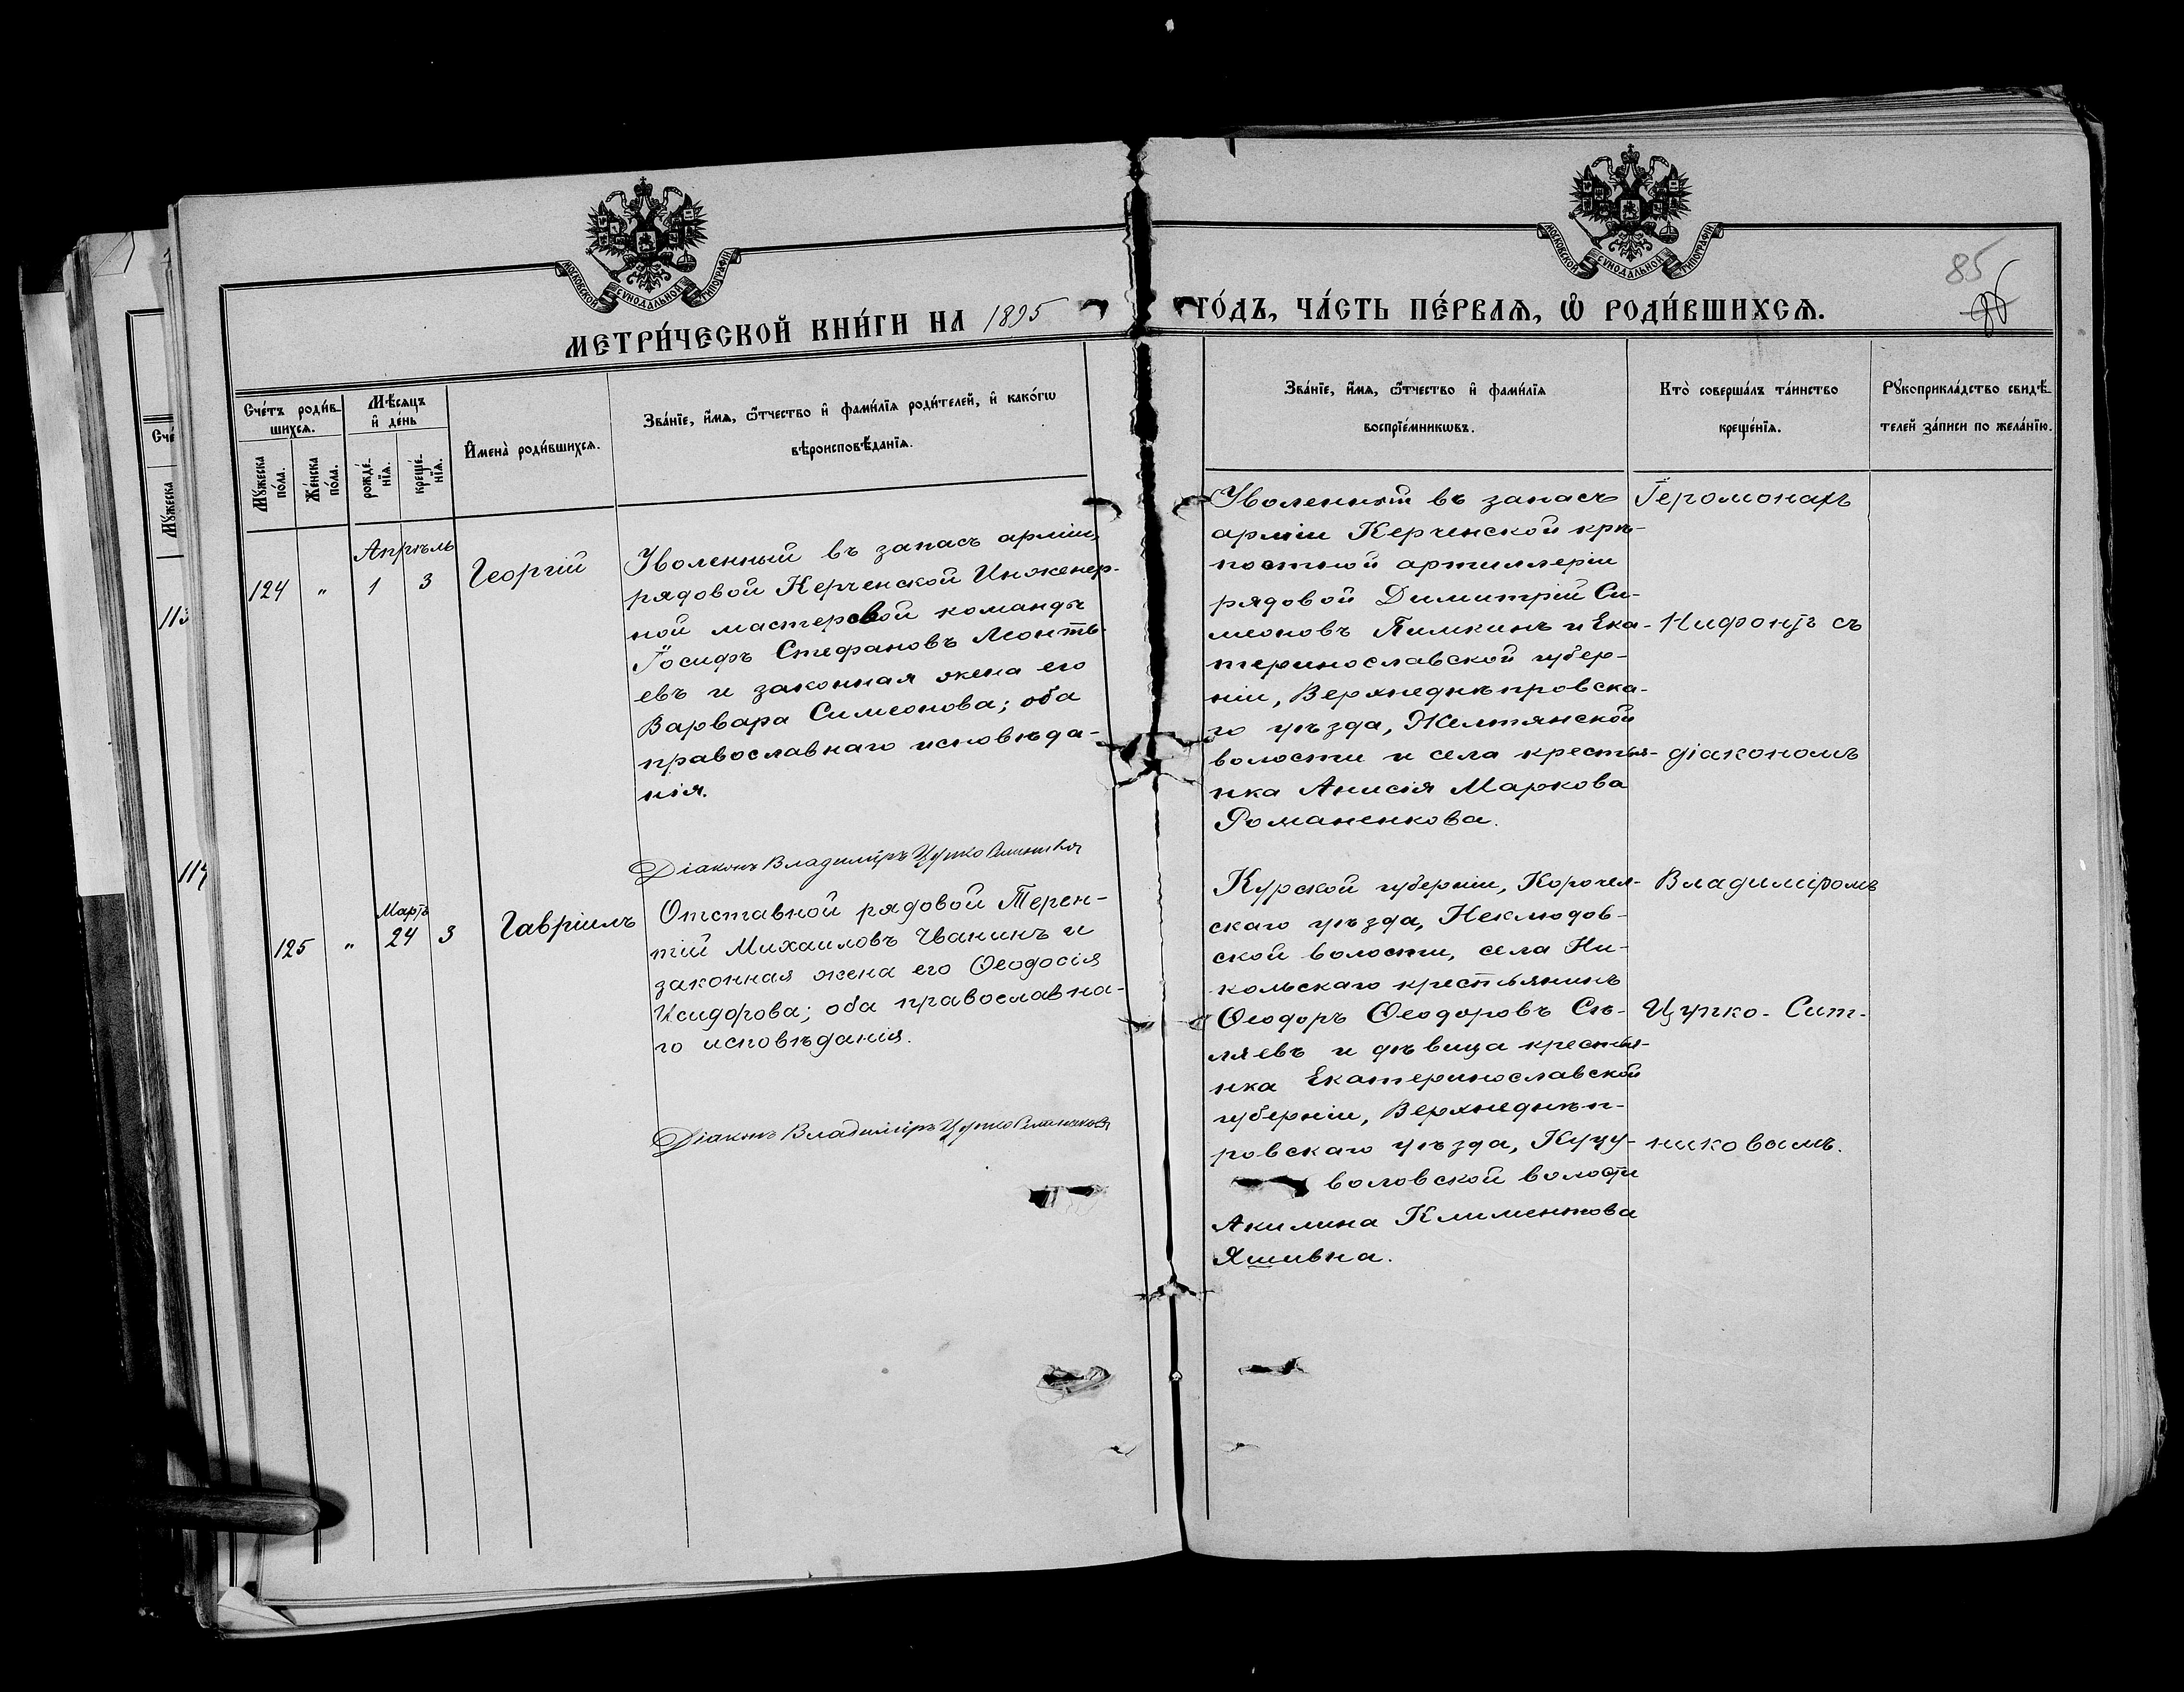 МОСКОВСКОЙ СУНОДАЛЬНОЙ ТИПОГРАФІИ
МОСКОВСКОЙ СУНОДАЛЬНОЙ ТИПОГРАФІИ
85
МЕТРИ́ЧЕСКОЙ КНИ́ГИ НА 1895
ГО́ДЪ, ЧА́СТЬ ПЕ́РВАѦ, Ѡ҆ РОДИ́ВШИХСѦ.
Сче́тъ роди́в-
шихсѧ.
Мѣ́сѧцъ
и҆ де́нь
Мꙋ́жеска
по́ла.
Же́нска
по́ла.
рожде́-
нїѧ.
креще́-
нїѧ.
И҆мена̀ роди́вшихсѧ.
Зва́нїе, и҆́мѧ, ѻ҆́тчество и҆ фами́лїѧ роди́телей, и҆ како́гѡ
вѣроисповѣ́данїѧ.
Зва́нїе, и҆́мѧ, ѻ҆́тчество и҆ фами́лїѧ
воспрїе́мникѡвъ.
Кто̀ соверша́лъ та́инство
креще́нїѧ.
Рꙋкоприкла́дство свидѣ́-
телей за́писи по жела́нїю.
Сче́
Мꙋ́жеска
113
114
124 " Апрѣль 1 3 Георгій
Уволенный въ запасъ арміи,
рядовой Керченской Инженер-
ной мастеровой команды
Іосифъ Стефановъ Леонть-
евъ и законная жена его
Варвара Симеонова; оба
православнаго исповѣда-
нія.
Діаконъ Владиміръ Цупко
Уволенный въ запасъ
арміи Керченской крѣ-
постной артиллеріи
рядовой Димитрій Си-
меоновъ Пимкинъ и Ека-
теринославской губер-
ніи, Верхнеднѣпровска-
го уѣзда, Желтянской
волости и села крестья-
нка Анисія Маркова
Романенкова.
Іеромонахъ
Нифонтъ съ
діакономъ
Владиміромъ
Цупко-Сит-
никовымъ.
125 " Мартъ 24 3 Гавріилъ
Отставной рядовой Терен-
тій Михаиловъ Чванинъ и
законная жена его Ѳеодосія
Исидорова; оба православна-
го исповѣданія.
Діаконъ Владиміръ Цупко
Курской губерніи, Корочан-
скаго уѣзда, Неклюдов-
ской волости, села Ни-
кольскаго крестьянинъ
Ѳеодоръ Ѳеодоровъ Съ-
ляевъ и дѣвица крестья-
нка Екатеринославской
губерніи, Верхнеднѣп-
ровскаго уѣзда, Куцу-
воловской волости
Акилина Климентова
Яшивна.